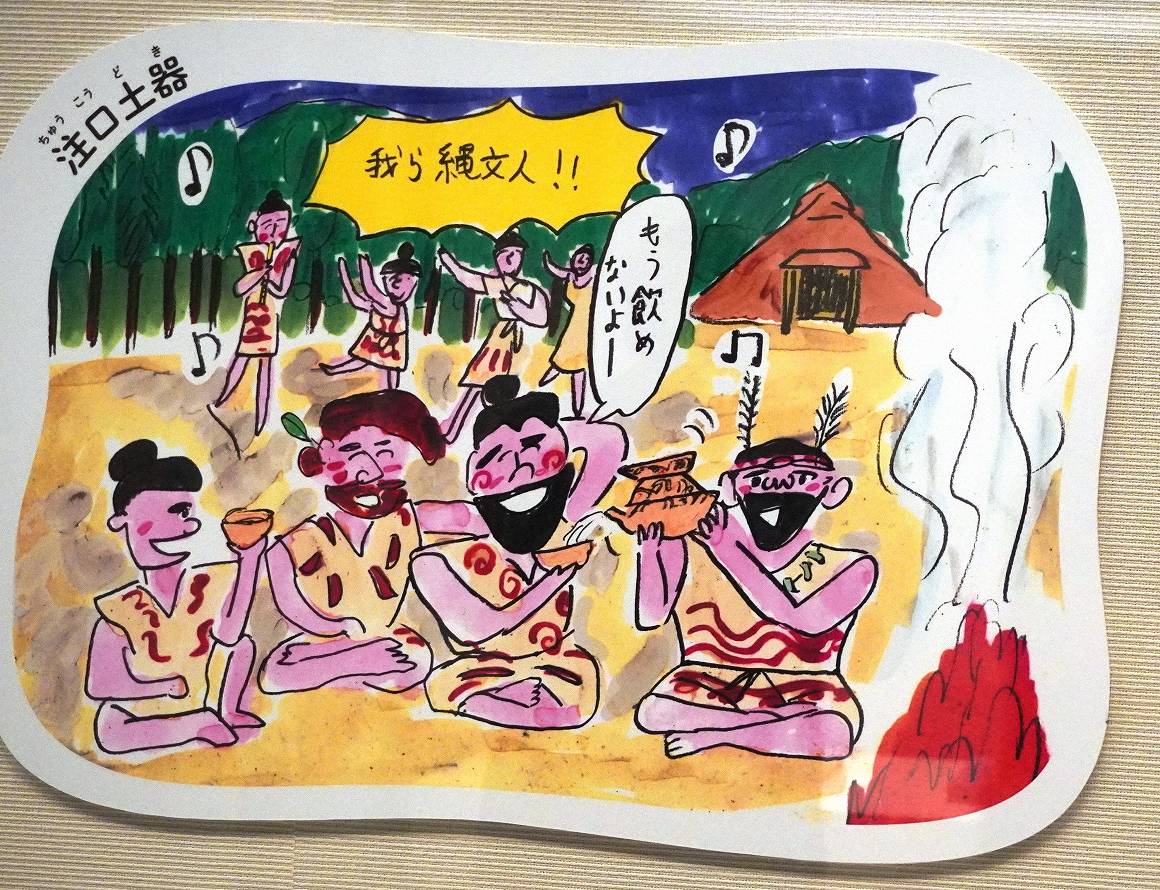 ちゅう こう ど き
注口土器
我ら縄文人!!
もう飲め
ないよー